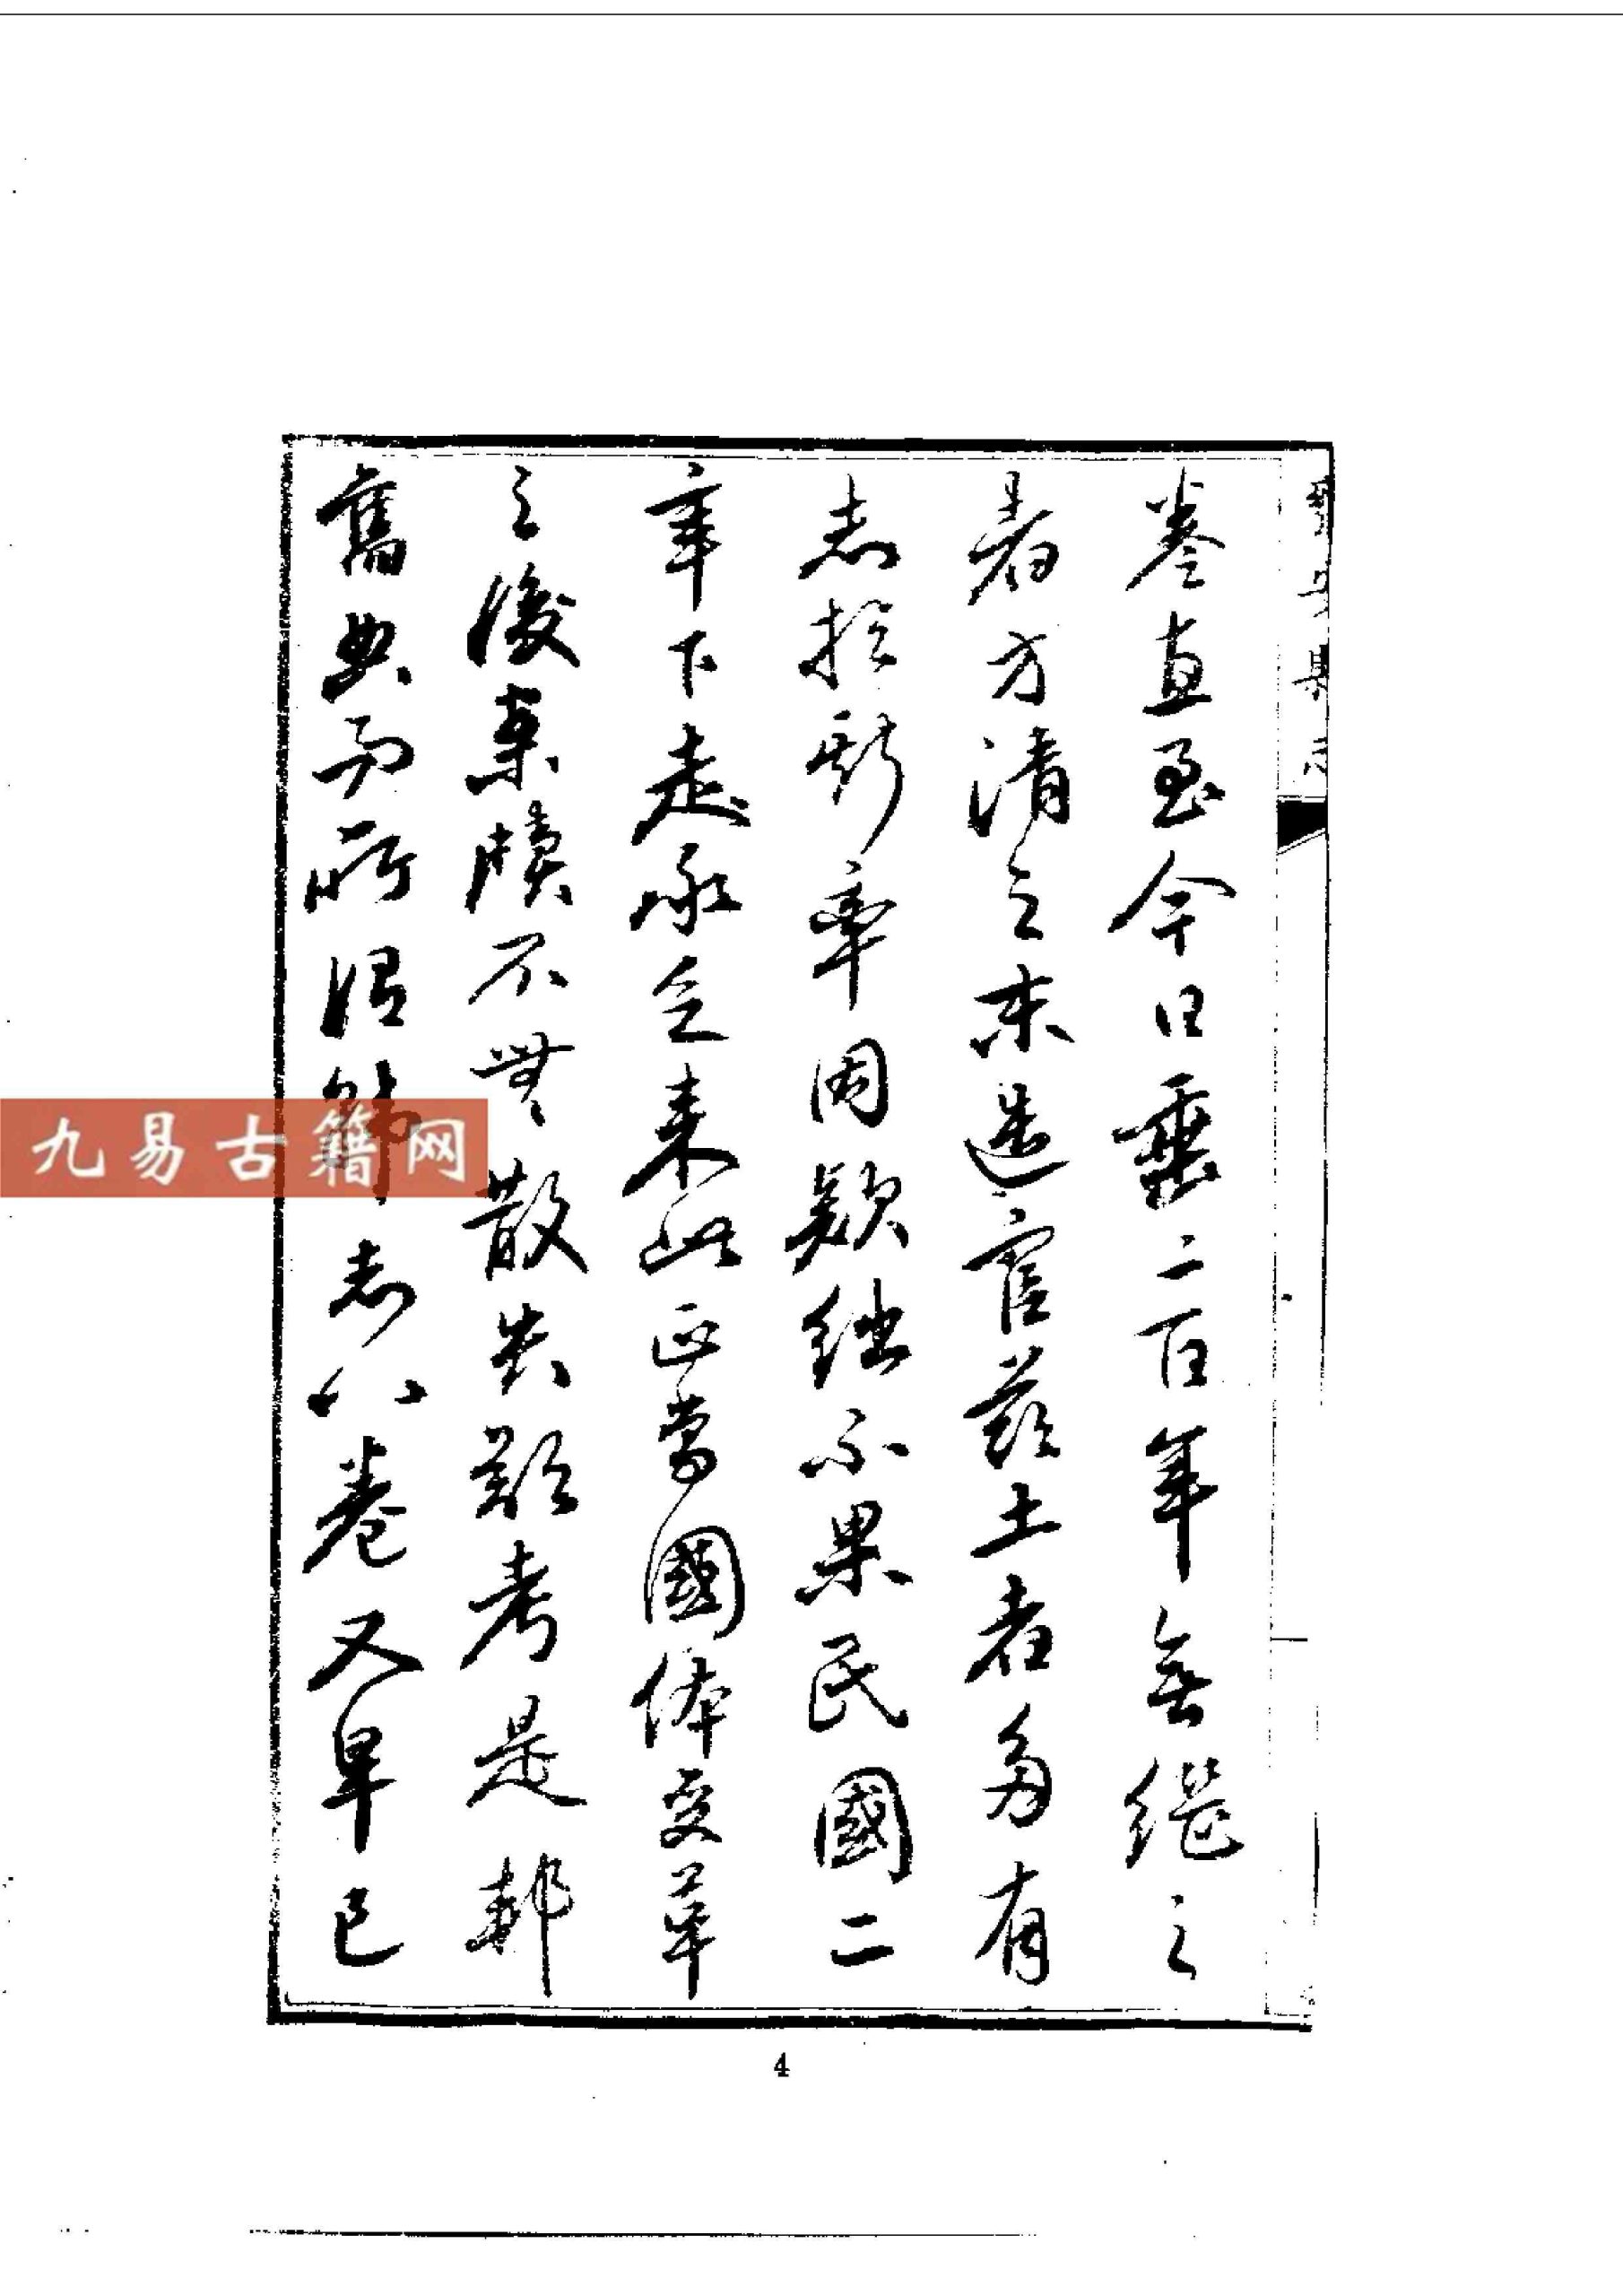 卷直至今日垂二百年無繼之
者方清之末造官茲土者多有
志於斯率因款絀不果民國二
年下走承乏來此正當國体变革
之後案牘不無散失難考是邦
舊典而所得韓志八卷又早已
4
九易古籍网